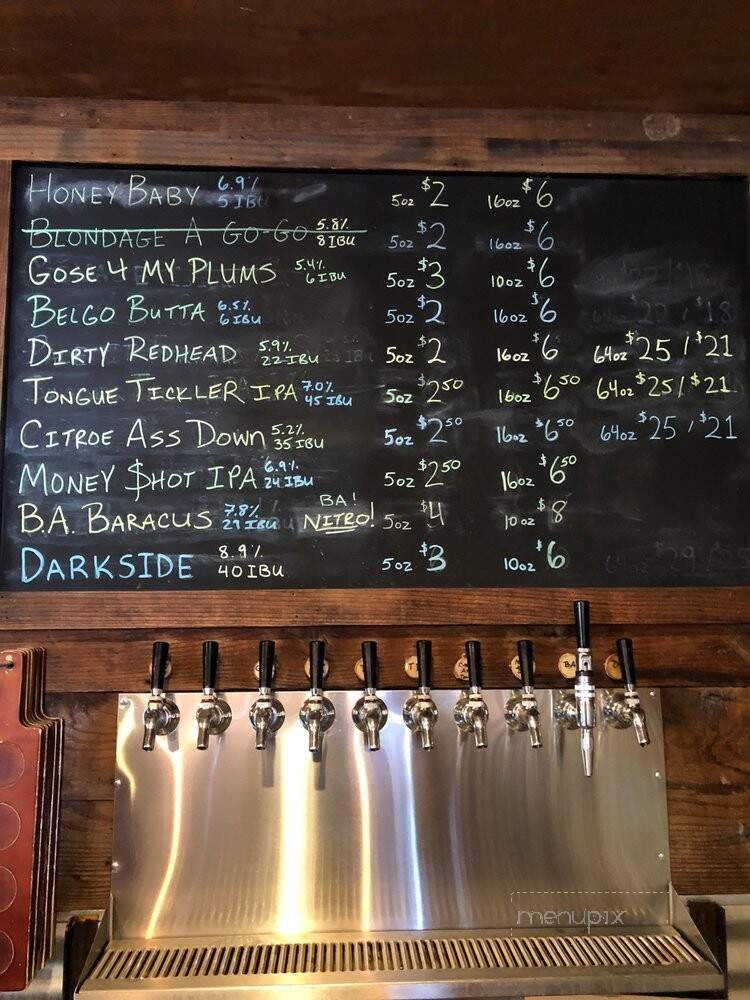 HONEY BABY 6.9% 5 IBU 5oz $2 16oz $6
BLONDAGE A GO-GO 5.8% 8 IBU 5oz $2 16oz $6
GOSE 4 MY PLUMS 5.4% 6 IBU 5oz $3 10oz $6
BELGO BUTTA 6.5% 6 IBU 5oz $2 16oz $6
DIRTY REDHEAD 5.9% 22 IBU 5oz $2 16oz $6 64oz $25 / $21
TONGUE TICKLER IPA 7.0% 45 IBU 5oz $2.50 16oz $6.50 64oz $25 / $21
CITROE ASS DOWN 5.2% 35 IBU 5oz $2.50 16oz $6.50 64oz $25 / $21
MONEY $HOT IPA 6.9% 24 IBU 5oz $2.50 16oz $6.50
B.A. BARACUS 7.8% 29 IBU BA! NITRO! 5oz $4 10oz $8
DARKSIDE 8.9% 40 IBU 5oz $3 10oz $6
menupix